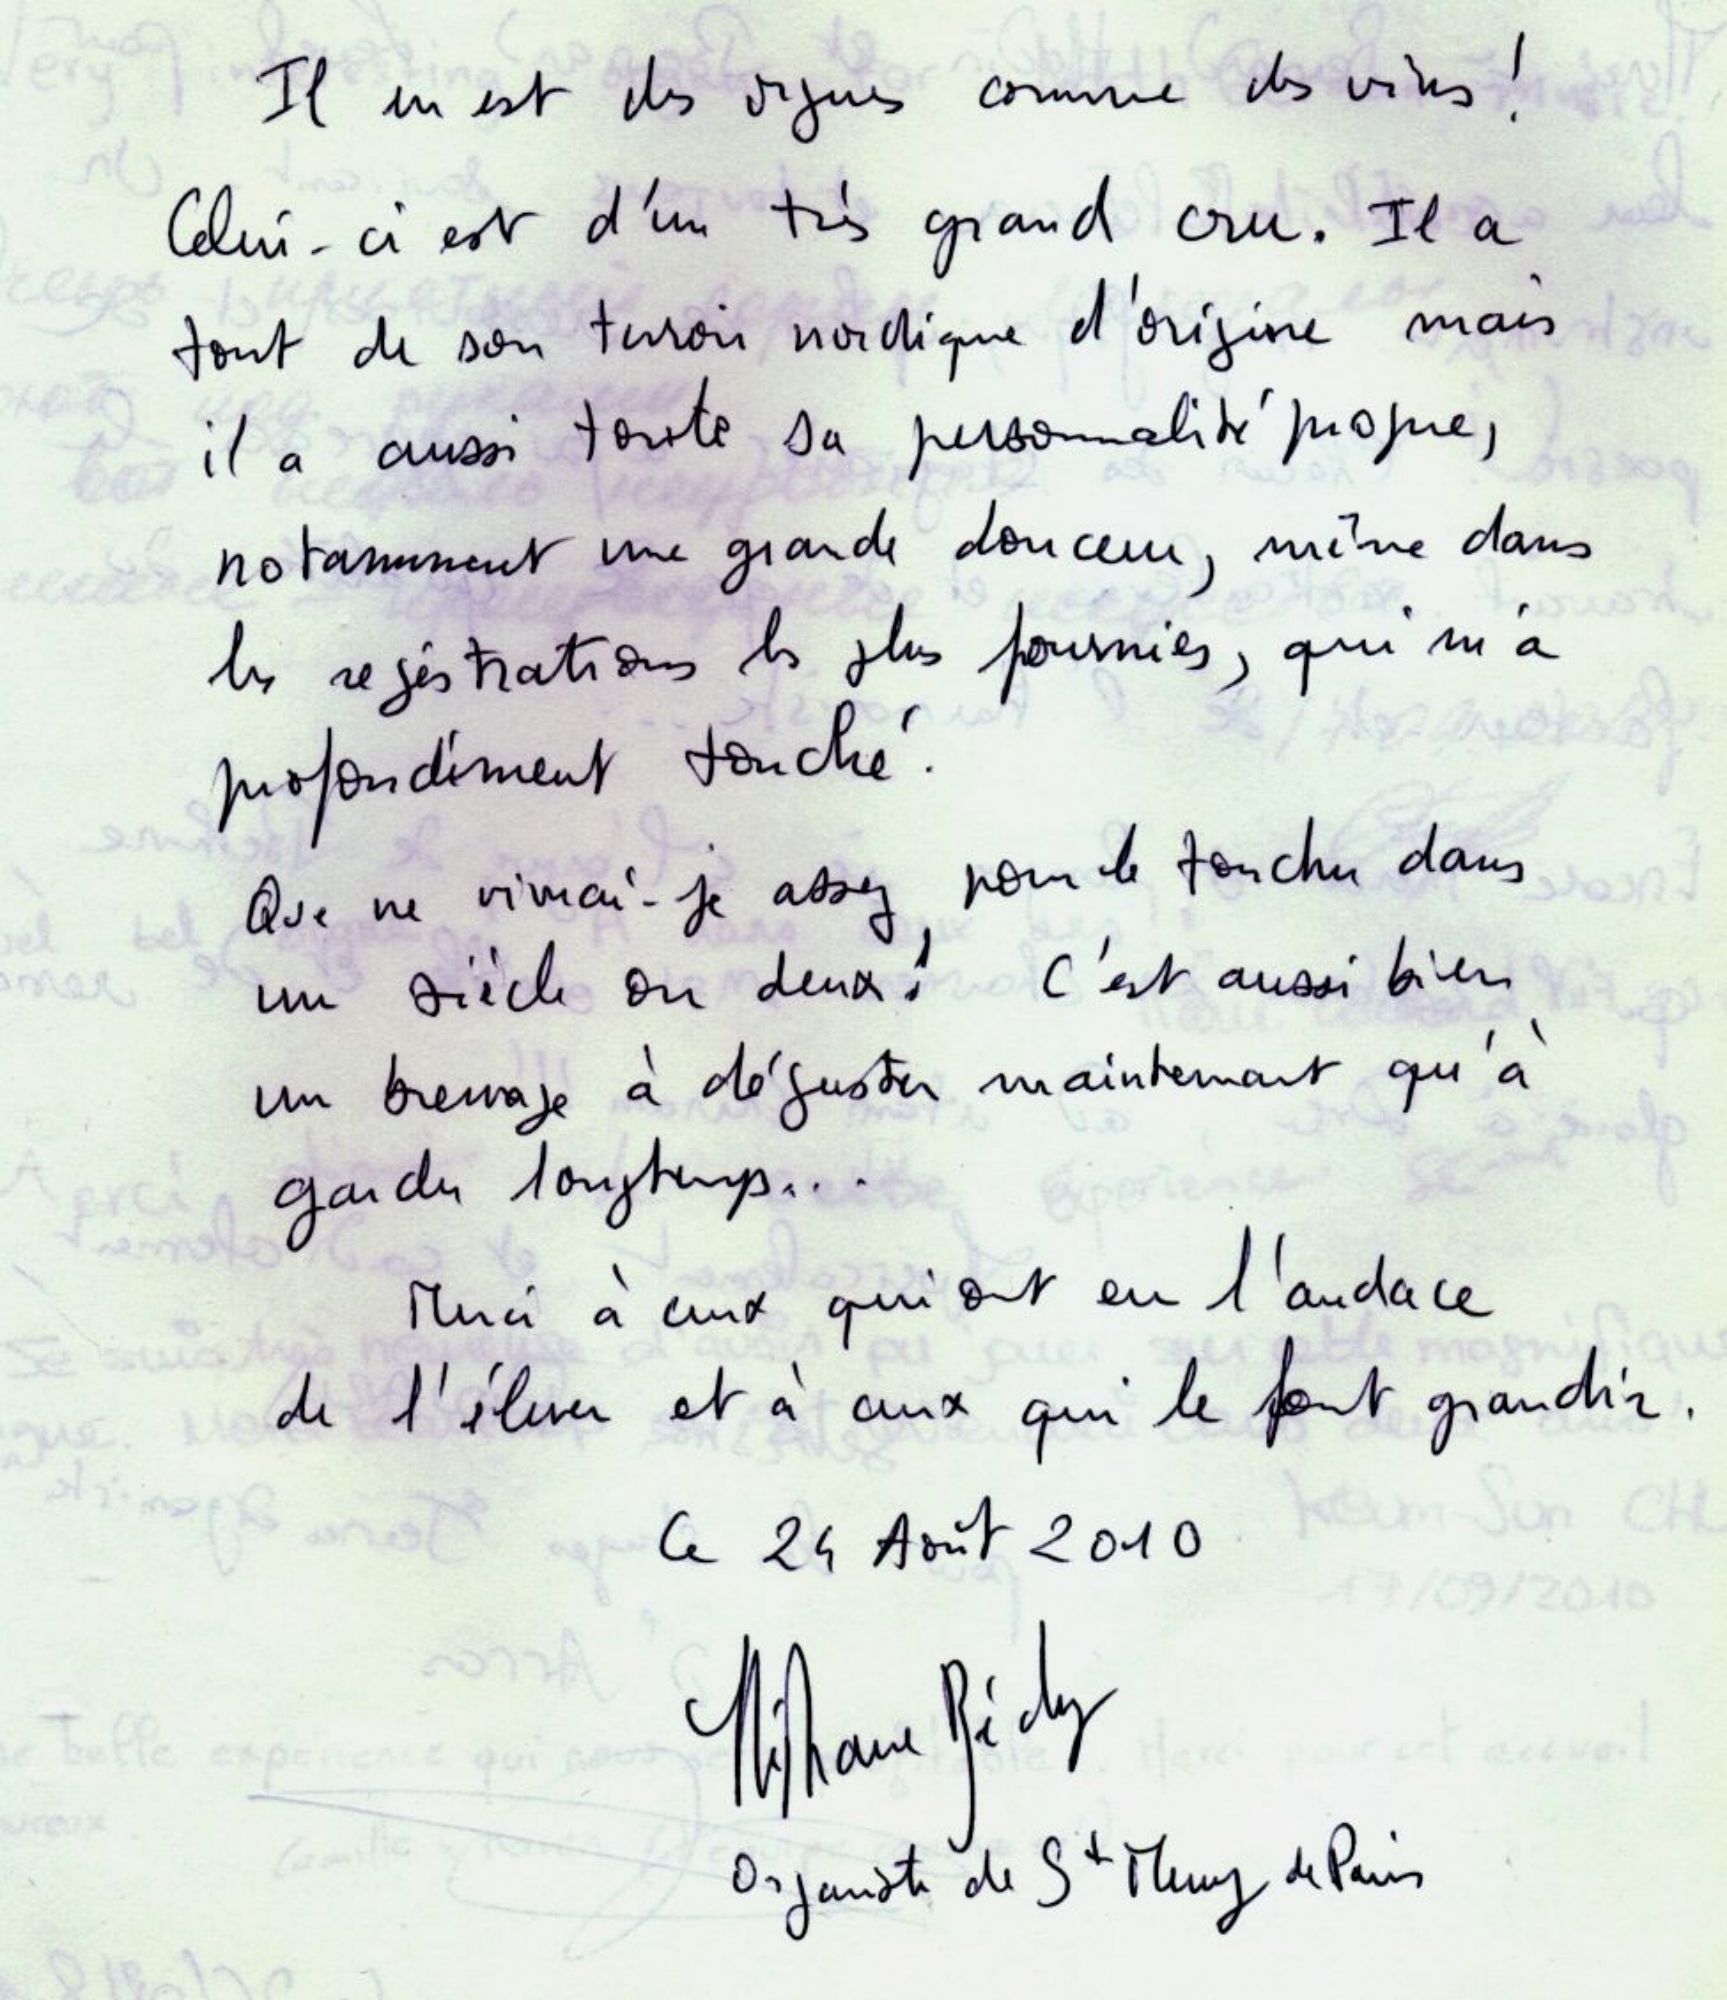 Il en est des orgues comme des vins !
Celui-ci est d'un très grand cru. Il a
tout de son terroir nordique d'origine mais
il a aussi toute sa personnalité propre,
notamment une grande douceur, même dans
les registrations les plus fournies, qui m'a
profondément touché.
Que ne vivrai-je assez pour le toucher dans
un siècle ou deux ! C'est aussi bien
un breuvage à déguster maintenant qu'à
garder longtemps...
Merci à ceux qui ont eu l'audace
de l'élever et à ceux qui le font grandir.
Ce 24 Août 2010
Stéphane Béchy
Organiste de St Merry de Paris